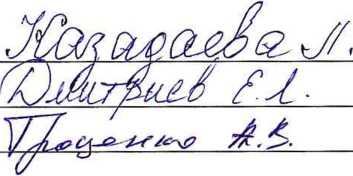 Казадаева Л.
Дмитриев Е.Л.
Проценко А.В.